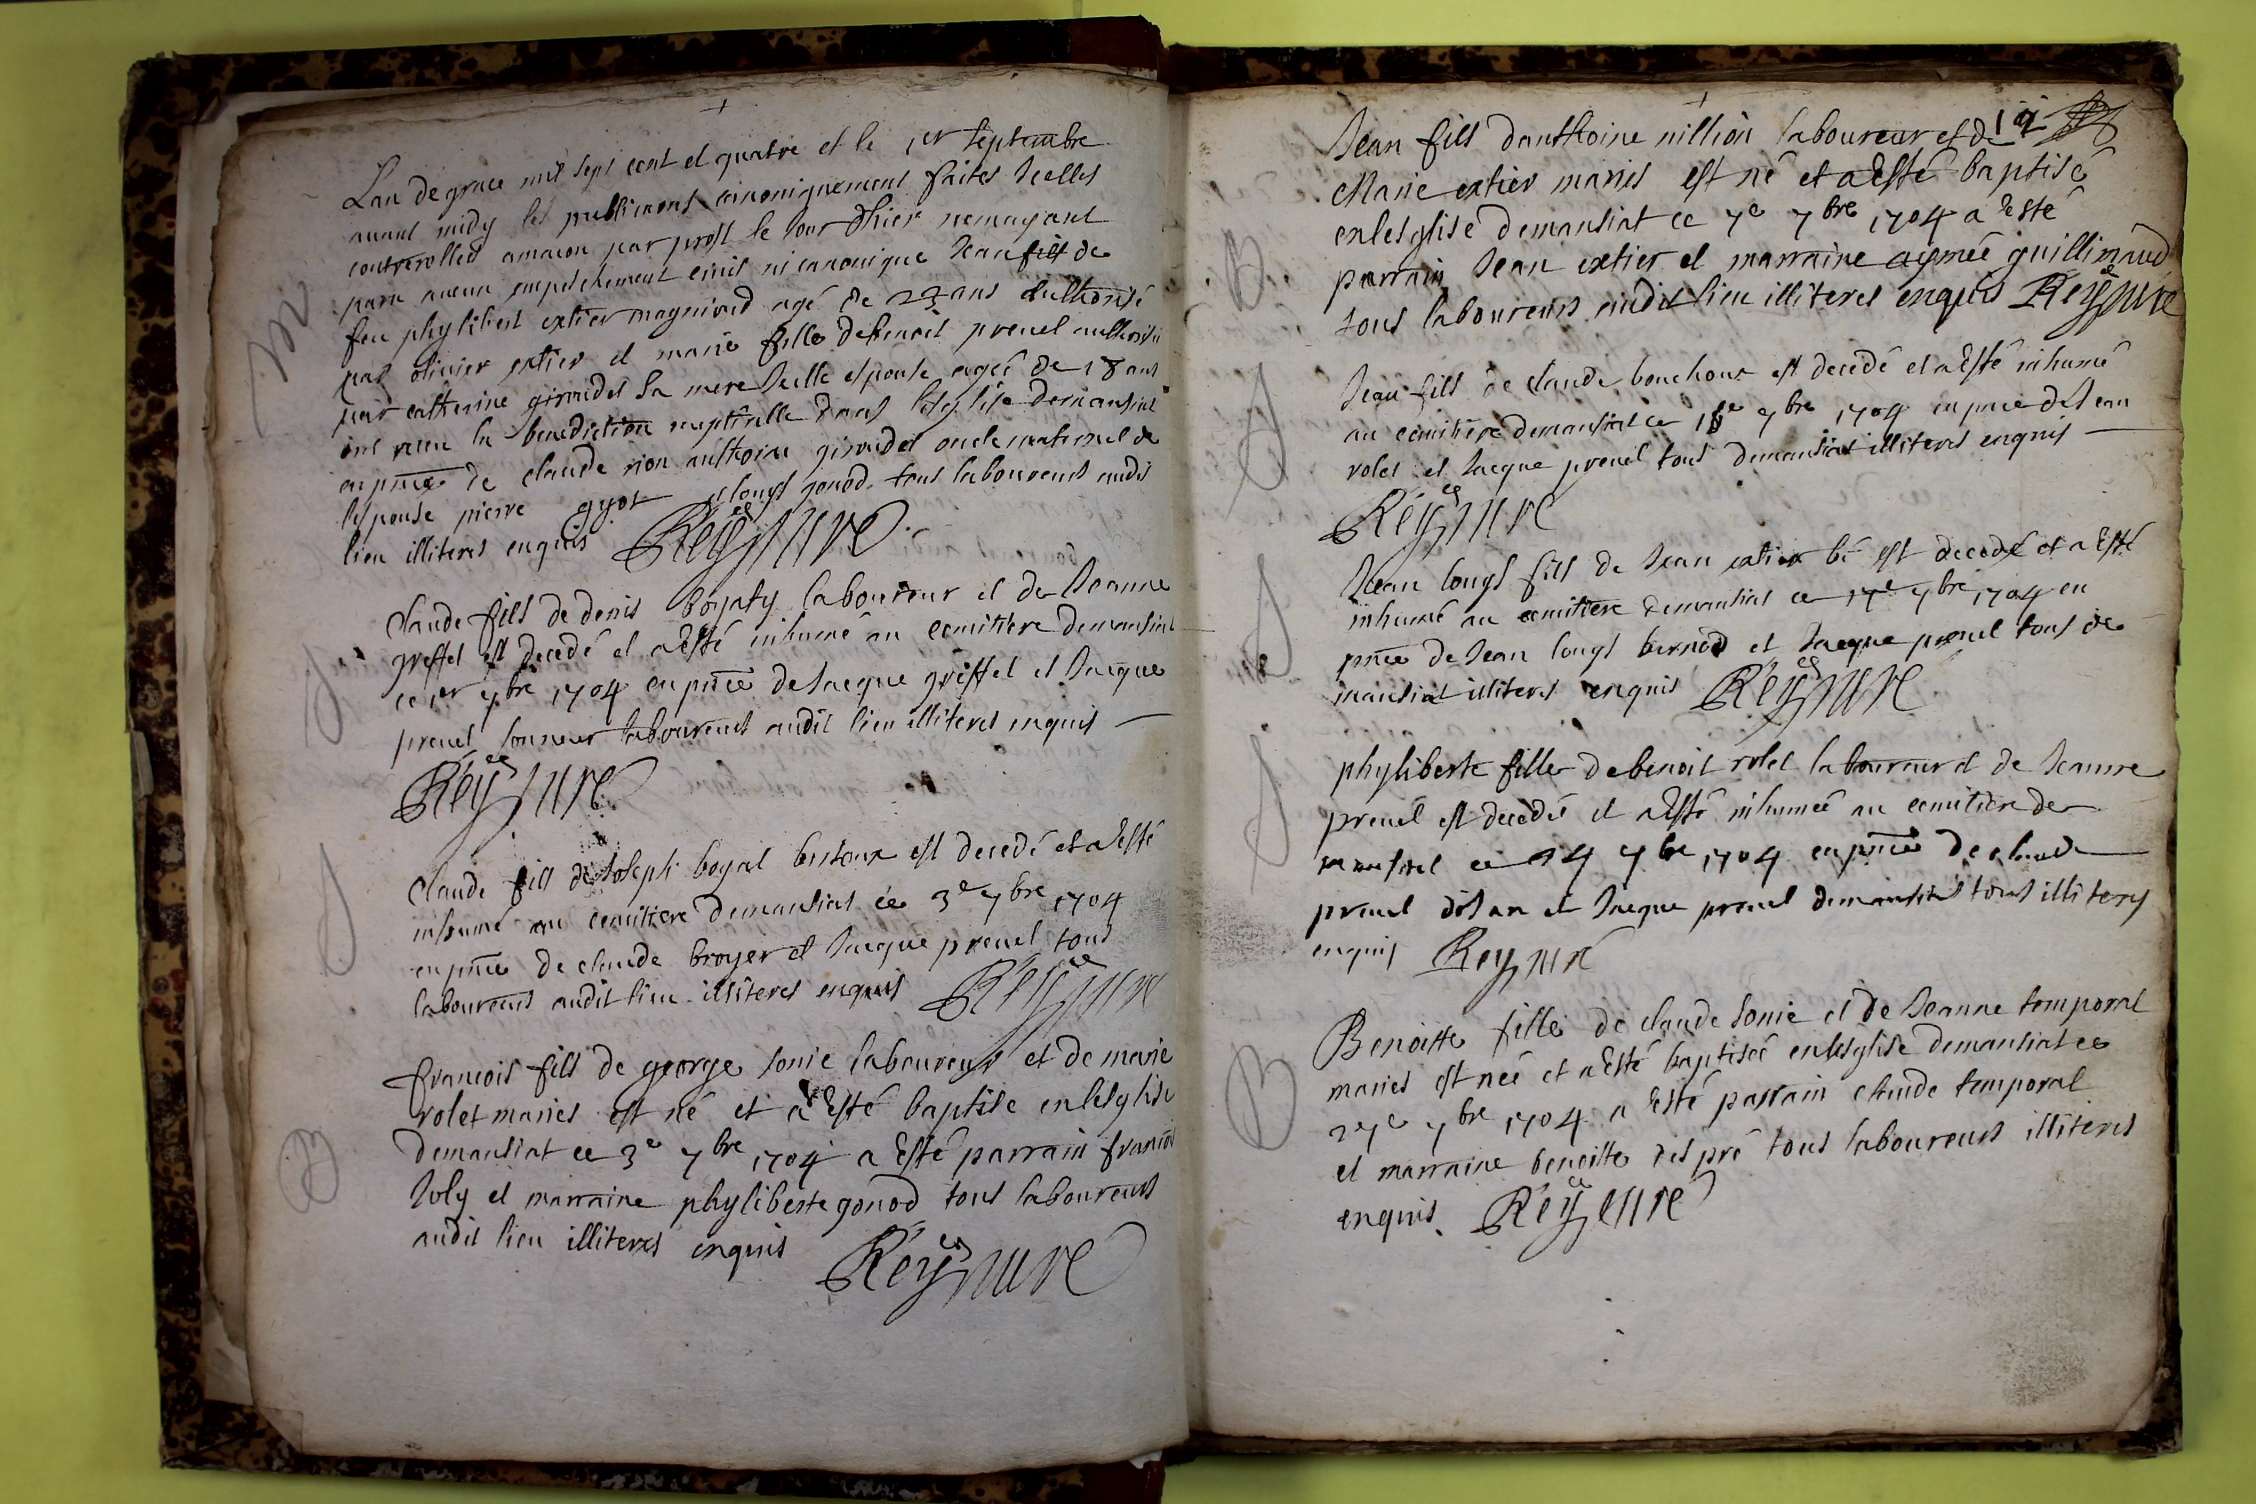 Lan de grace mil sept cent et quatre et le 1er septembre
avant midy les publicaons canoniquement faites Icelles
controrolleés amacon par prost le jour dhier nemayant
paru aucun empeschement civil ni canonique Jean fils de
feu phylibert extier magnivod agé de 23 ans authorisé
par olivier extier et marie fille debenoit preuel authorisée
par catherine giraudet sa mere Icelle espouse ageé de 18 ans
ont receu la benediction nuptialle dans lesglise demansiat
en pnce de claude rion anthoine giraudet oncle maternel de
lespouse pierre guyot et longs gonod tous laboureurs audit
lieu illiteres enquis Réÿ curé
M
Claude fils de denis boyaty laboureur et de Jeanne
greffet est decedé et a Esté inhumé au cemitiere demansiat
ce 1er 7bre 1704 en pnce de Jacque griffet et Jacque
preuel sonneur laboureurs audit lieu illiteres enquis
Réÿ curé
S
Claude fils de Joseph boyat bertoux est decedé et a Esté
inhumé au cemitiere demansiat ce 3e 7bre 1704
en pnce de claude broyer et Jacque preuel tous
laboureurs audit lieu illiteres enquis Réÿ curé
S
francois fils de george sonie laboureur et de marie
rolet mariés est né et a Esté baptisé enlesglise
demansiat ce 3e 7bre 1704 a Esté parrain francois
Joly et marraine phyliberte gonod tous laboureurs
audit lieu illiteres enquis Réÿ curé
B
Jean fils danthoine nillion laboureur et de
Marie extier mariés est né et a Esté baptisé
enlesglise demansiat ce 7e 7bre 1704 a Esté
parrain Jean extier et marraine aymeé guillimaud
tous laboureurs audit lieu illiteres enquis Réÿ curé
B
Jean fils de claude bouchoux est decedé et a Esté inhumé
au cemitiere demansiat ce 7bre 1704 en pnce de Jean
rolet et Jacque preuel tous demansiat illiteres enquis
Réÿ curé
S
Jean longs fils de Jean extier bé est decedé et a Esté
inhumé au cemitiere demansiat ce 17e 7bre 1704 en
pnce de Jean longs bernod et Jacque preuel tous de
mansiat illiteres enquis Réÿ curé
S
phyliberte fille debenoit rolet laboureur et de Jeanne
preuel est decedeé et a Esté inhumeé au cemitiere de
mansiat ce 24 7bre 1704 en pnce de claude
preuel et Jacque preuel demansiat tous illiteres
enquis Rey curé
S
Benoitte fille de claude sonie et de Jeanne temporal
mariés est neé et a Esté baptiseé enlesglise demansiat ce
27e 7bre 1704 a Esté parrain claude temporal
et marraine benoitte des pré tous laboureurs illiteres
enquis Réÿ curé
B